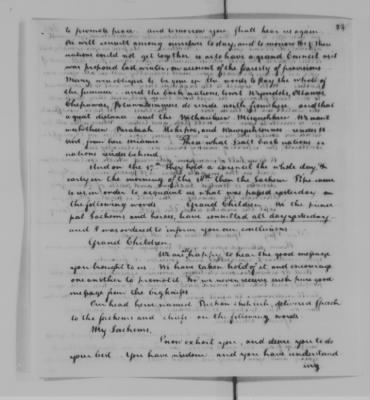 to promote peace. and tomorrow you shall hear us again.
We will consult among ourselves today, and to morrow
nations could not get together so as to have a grand Council as it
was proposed last winter, on account of the scarcity of provisions
Many are obliged to be in the woods to stay the whole of
the summer. and the back nations, local Wyandots, Ottawas
Chepawas, Potawatamies do reside north from here and that
a great distance and the
Kickapoos, and
Then what I call back nations
nations reside behind
And on the 9th They held a council the whole day, &
early on the morning of the 10th then the Sachem Pipe came
to us in order to acquaint us what was passed yesterday on
the following words Grand Children. We the princi
pal Sachems and heroes, have consulted all day yesterday
and I was ordered to inform you our conclusions
Grand Children.
We are happy to hear the good message
you brought to us. We have taken hold of it and encourage
one another to promote it. For we never receive such pure good
message from the big knifes
Our head hero named delivered speech
to the Sachems and chiefs on the following words
My Sachems,
I now exhort you, and desire you to do
your best. You have wisdom and you have understand
ing